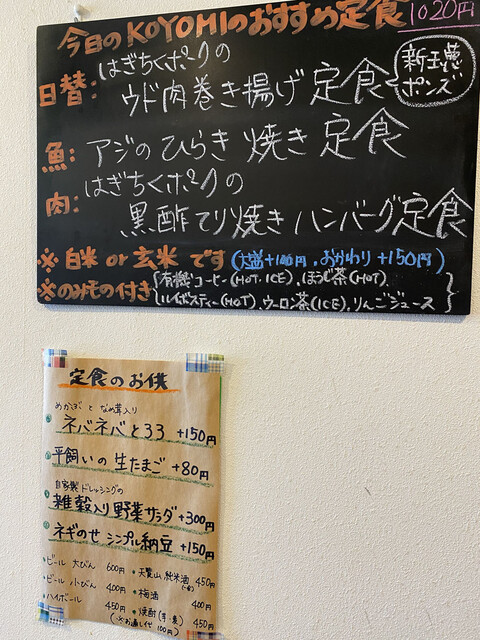 今日のKOYOMIのおすすめ定食 1020円
日替: はぎちくポークの
ウド肉巻き揚げ定食
新玉葱と
ポンズ
魚: アジのひらき焼き定食
肉: はぎちくポークの
黒酢てり焼きハンバーグ定食
※白米or玄米です(大盛+100円、おかわり+150円)
※のみもの付き{有機コーヒー(HOT・ICE)、ほうじ茶(HOT)、
ルイボスティー(HOT)、ウーロン茶(ICE)、りんごジュース}
定食のお供
めかぶとなめ茸入り
ネバネバとろろ +150円
平飼いの生たまご +80円
自家製ドレッシングの
雑穀入り野菜サラダ +300円
ネギのせシンプル納豆 +150円
・ビール 大びん 600円
・ビール 小びん 400円
・ハイボール 450円
・天覧山、純米酒 450円
・梅酒 400円
・焼酎(芋・麦) 450円
(※お通し代 100円)